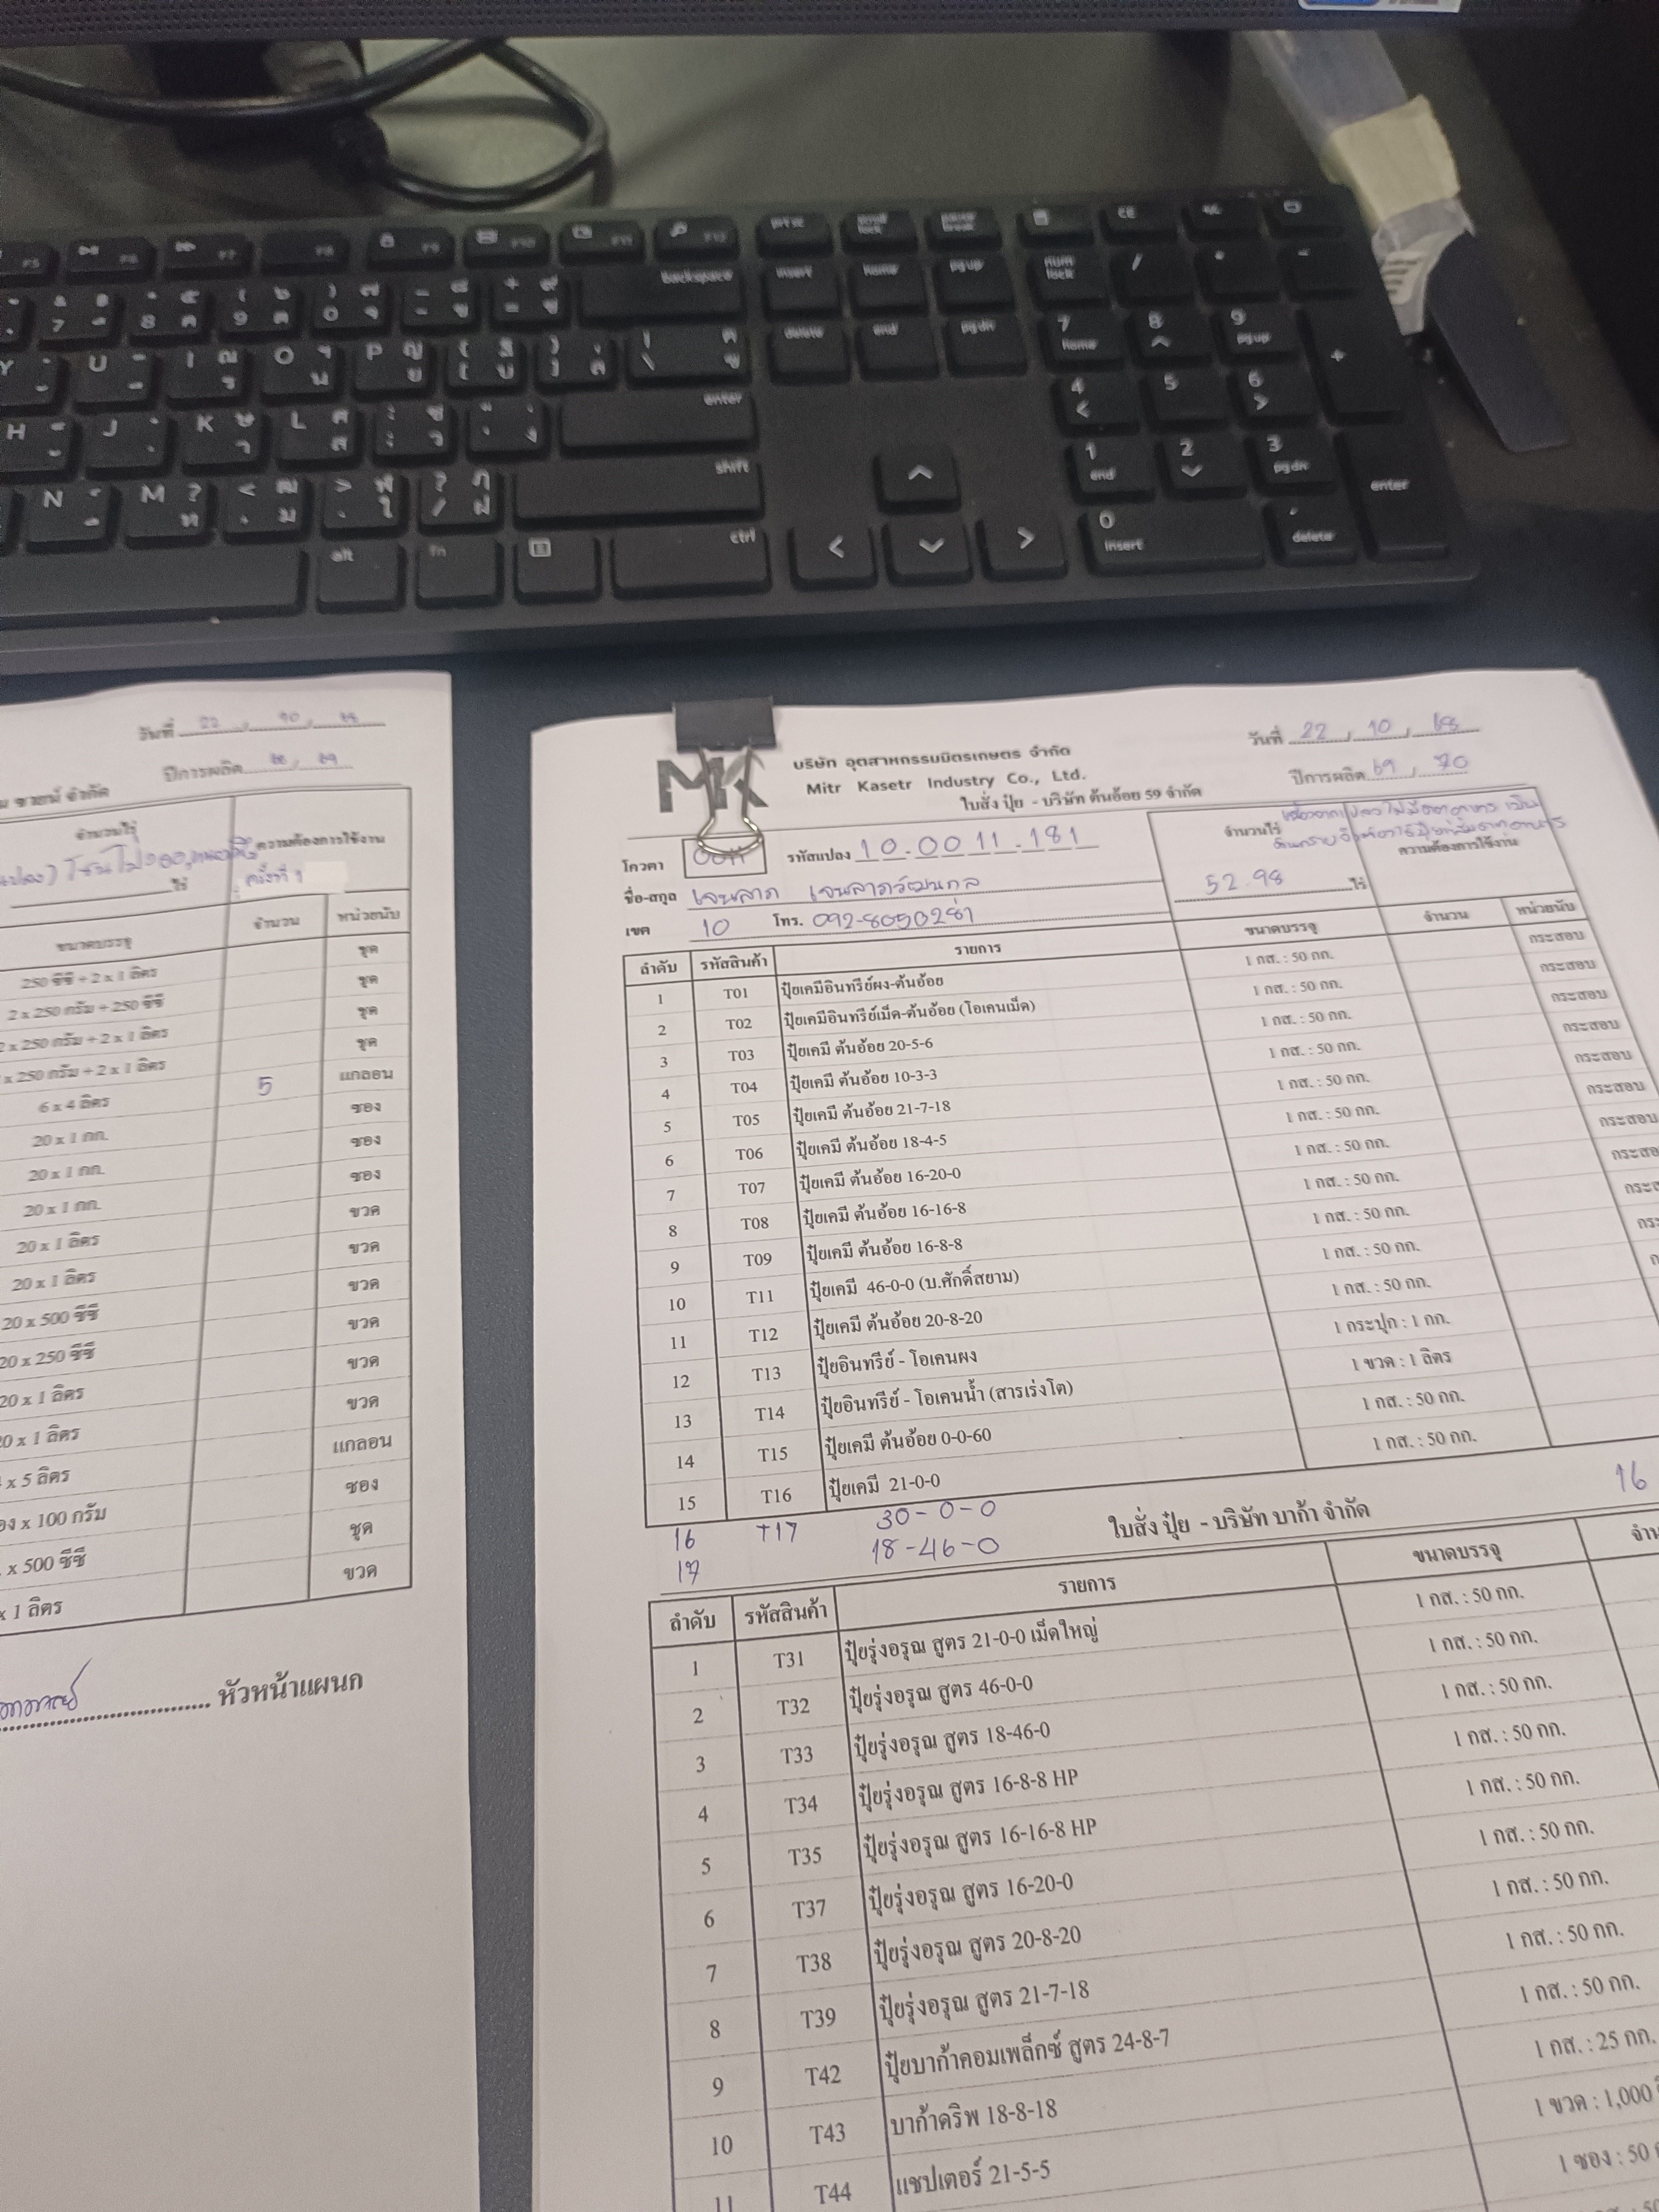 วันที่ 22 / 10 / 68
ปีการผลิต 68 / 69
จำนวนไร่
ความต้องการใช้งาน
ไร่
ครั้งที่ 1
ขนาดบรรจุ จำนวน หน่วยนับ
250 ซีซี + 2 x 1 ลิตร ชุด
2 x 250 กรัม + 250 ซีซี ชุด
2 x 250 กรัม + 2 x 1 ลิตร ชุด
x 250 กรัม + 2 x 1 ลิตร ชุด
6 x 4 ลิตร 5 แกลอน
20 x 1 กก. ซอง
20 x 1 กก. ซอง
20 x 1 กก. ซอง
20 x 1 ลิตร ขวด
20 x 1 ลิตร ขวด
20 x 500 ซีซี ขวด
20 x 250 ซีซี ขวด
20 x 1 ลิตร ขวด
20 x 1 ลิตร ขวด
x 5 ลิตร แกลอน
x 100 กรัม ซอง
x 500 ซีซี ชุด
x 1 ลิตร ขวด
หัวหน้าแผนก
MK
บริษัท อุตสาหกรรมมิตรเกษตร จำกัด
Mitr Kasetr Industry Co., Ltd.
ใบสั่ง ปุ๋ย - บริษัท ต้นอ้อย 59 จำกัด
วันที่ 22 / 10 / 68
ปีการผลิต 69 / 70
โควตา 0011 รหัสแปลง 10-0011-181
ชื่อ-สกุล เจนลาภ เจนลาภวัฒนกุล
เขต 10 โทร. 092-8050281
จำนวนไร่
52.98 ไร่
ความต้องการใช้งาน
ลำดับ รหัสสินค้า รายการ ขนาดบรรจุ จำนวน หน่วยนับ
1 T01 ปุ๋ยเคมีอินทรีย์ผง-ต้นอ้อย 1 กส. : 50 กก. กระสอบ
2 T02 ปุ๋ยเคมีอินทรีย์เม็ด-ต้นอ้อย (โอเคนเม็ด) 1 กส. : 50 กก. กระสอบ
3 T03 ปุ๋ยเคมี ต้นอ้อย 20-5-6 1 กส. : 50 กก. กระสอบ
4 T04 ปุ๋ยเคมี ต้นอ้อย 10-3-3 1 กส. : 50 กก. กระสอบ
5 T05 ปุ๋ยเคมี ต้นอ้อย 21-7-18 1 กส. : 50 กก. กระสอบ
6 T06 ปุ๋ยเคมี ต้นอ้อย 18-4-5 1 กส. : 50 กก. กระสอบ
7 T07 ปุ๋ยเคมี ต้นอ้อย 16-20-0 1 กส. : 50 กก. กระสอบ
8 T08 ปุ๋ยเคมี ต้นอ้อย 16-16-8 1 กส. : 50 กก.
9 T09 ปุ๋ยเคมี ต้นอ้อย 16-8-8 1 กส. : 50 กก.
10 T11 ปุ๋ยเคมี 46-0-0 (บ.ศักดิ์สยาม) 1 กส. : 50 กก.
11 T12 ปุ๋ยเคมี ต้นอ้อย 20-8-20 1 กส. : 50 กก.
12 T13 ปุ๋ยอินทรีย์ - โอเคนผง 1 กระปุก : 1 กก.
13 T14 ปุ๋ยอินทรีย์ - โอเคนน้ำ (สารเร่งโต) 1 ขวด : 1 ลิตร
14 T15 ปุ๋ยเคมี ต้นอ้อย 0-0-60 1 กส. : 50 กก.
15 T16 ปุ๋ยเคมี 21-0-0 1 กส. : 50 กก.
16 T17 30-0-0 16
17 18-46-0
ใบสั่ง ปุ๋ย - บริษัท บาก้า จำกัด
ลำดับ รหัสสินค้า รายการ ขนาดบรรจุ
1 T31 ปุ๋ยรุ่งอรุณ สูตร 21-0-0 เม็ดใหญ่ 1 กส. : 50 กก.
2 T32 ปุ๋ยรุ่งอรุณ สูตร 46-0-0 1 กส. : 50 กก.
3 T33 ปุ๋ยรุ่งอรุณ สูตร 18-46-0 1 กส. : 50 กก.
4 T34 ปุ๋ยรุ่งอรุณ สูตร 16-8-8 HP 1 กส. : 50 กก.
5 T35 ปุ๋ยรุ่งอรุณ สูตร 16-16-8 HP 1 กส. : 50 กก.
6 T37 ปุ๋ยรุ่งอรุณ สูตร 16-20-0 1 กส. : 50 กก.
7 T38 ปุ๋ยรุ่งอรุณ สูตร 20-8-20 1 กส. : 50 กก.
8 T39 ปุ๋ยรุ่งอรุณ สูตร 21-7-18 1 กส. : 50 กก.
9 T42 ปุ๋ยบาก้าคอมเพล็กซ์ สูตร 24-8-7 1 กส. : 50 กก.
10 T43 บาก้าดริพ 18-8-18 1 กส. : 25 กก.
11 T44 แชปเตอร์ 21-5-5 1 ขวด : 1,000
1 ซอง : 50